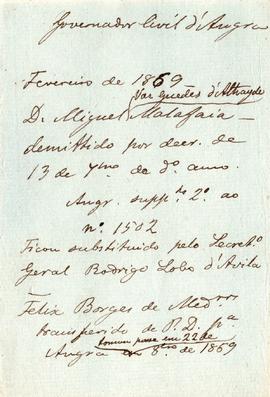 Governador Civil d'Angra
Fevereiro de 1869
Vaz Guedes d'Athayde
D. Miguel Malafaia
demittido por decr. de
13 de 7bro de do. anno.
Angr. suppto. 2º ao
nº. 1502
Ficou substituido pelo Secreto
Geral Rodrigo Lobo d'Avila
Felix Borges de Medros
transferido de P. D. pa
tomou posse em 22 de
Angra 8bro de 1869